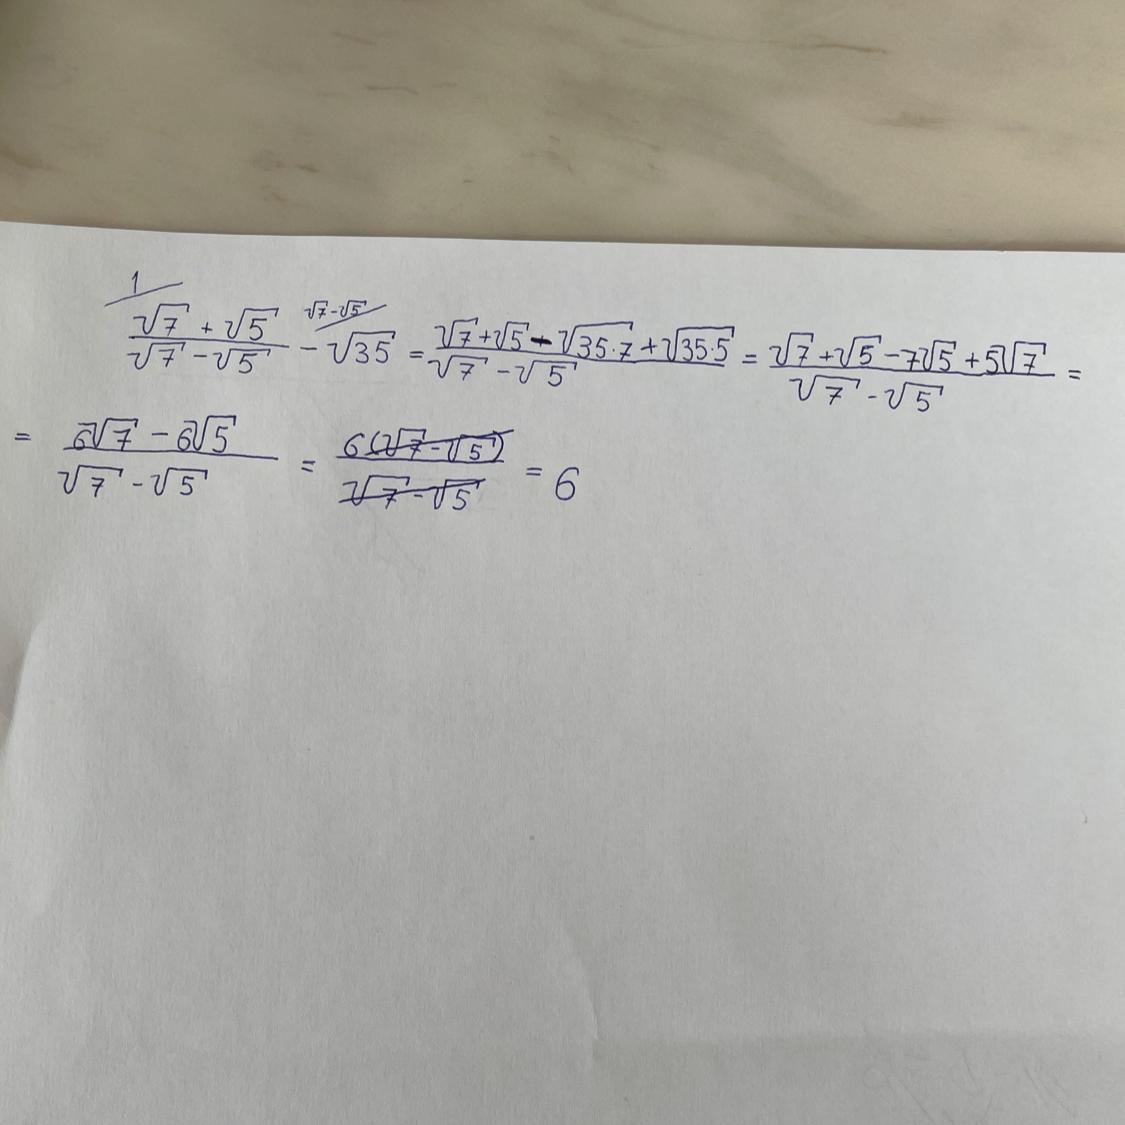 1/ (√7 + √5)/(√7 - √5) - √35 ^(√7 - √5)/ = (√7 + √5 - √(35·7) + √(35·5))/(√7 - √5) = (√7 + √5 - 7√5 + 5√7)/(√7 - √5) =
= (6√7 - 6√5)/(√7 - √5) = (6(√7 - √5))/(√7 - √5) = 6